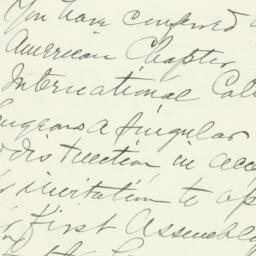 You have conferred
American Chapter
International Col
Surgeons a singular
distinction in acc
invitation to ap
first Assembly